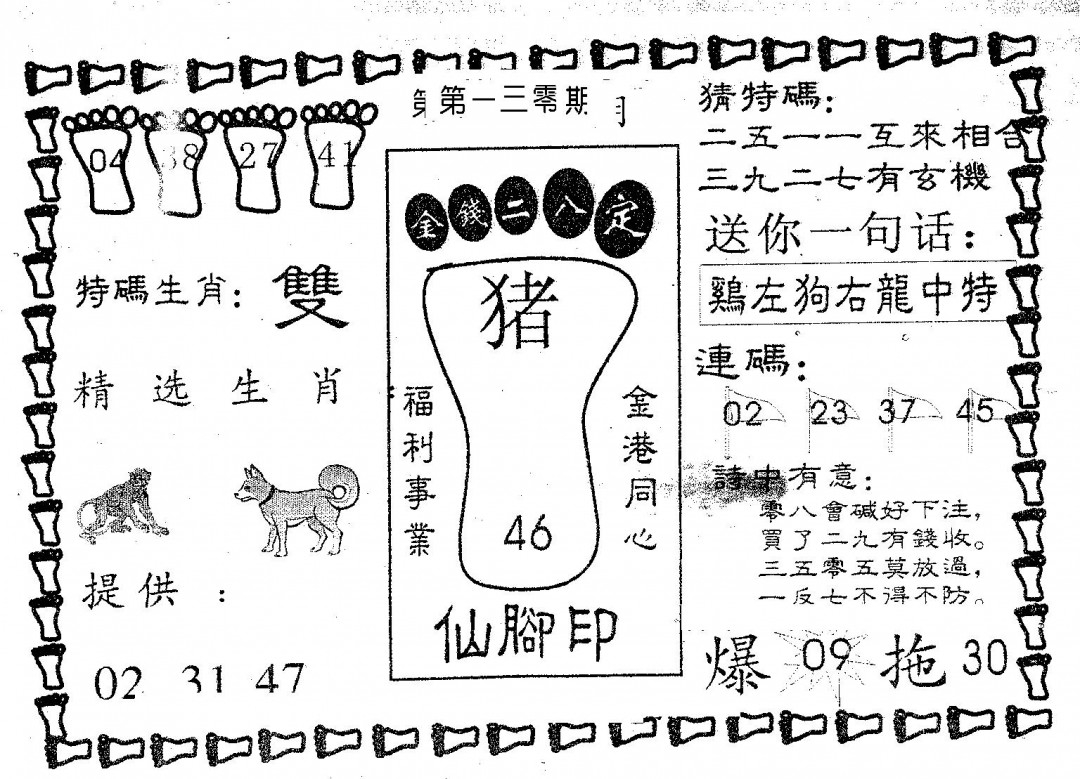 第第一三零期
04 38 27 41
特碼生肖：雙
精选生肖
提供：
02 31 47
金錢二八定
猪
福利事業
金港同心
46
仙腳印
猜特碼：
二五一一互來相合
三九二七有玄機
送你一句话：
鷄左狗右龍中特
連碼：
02 23 37 45
詩中有意：
零八會碱好下注，
買了二九有錢收。
三五零五莫放過，
一反七不得不防。
爆 09 拖 30